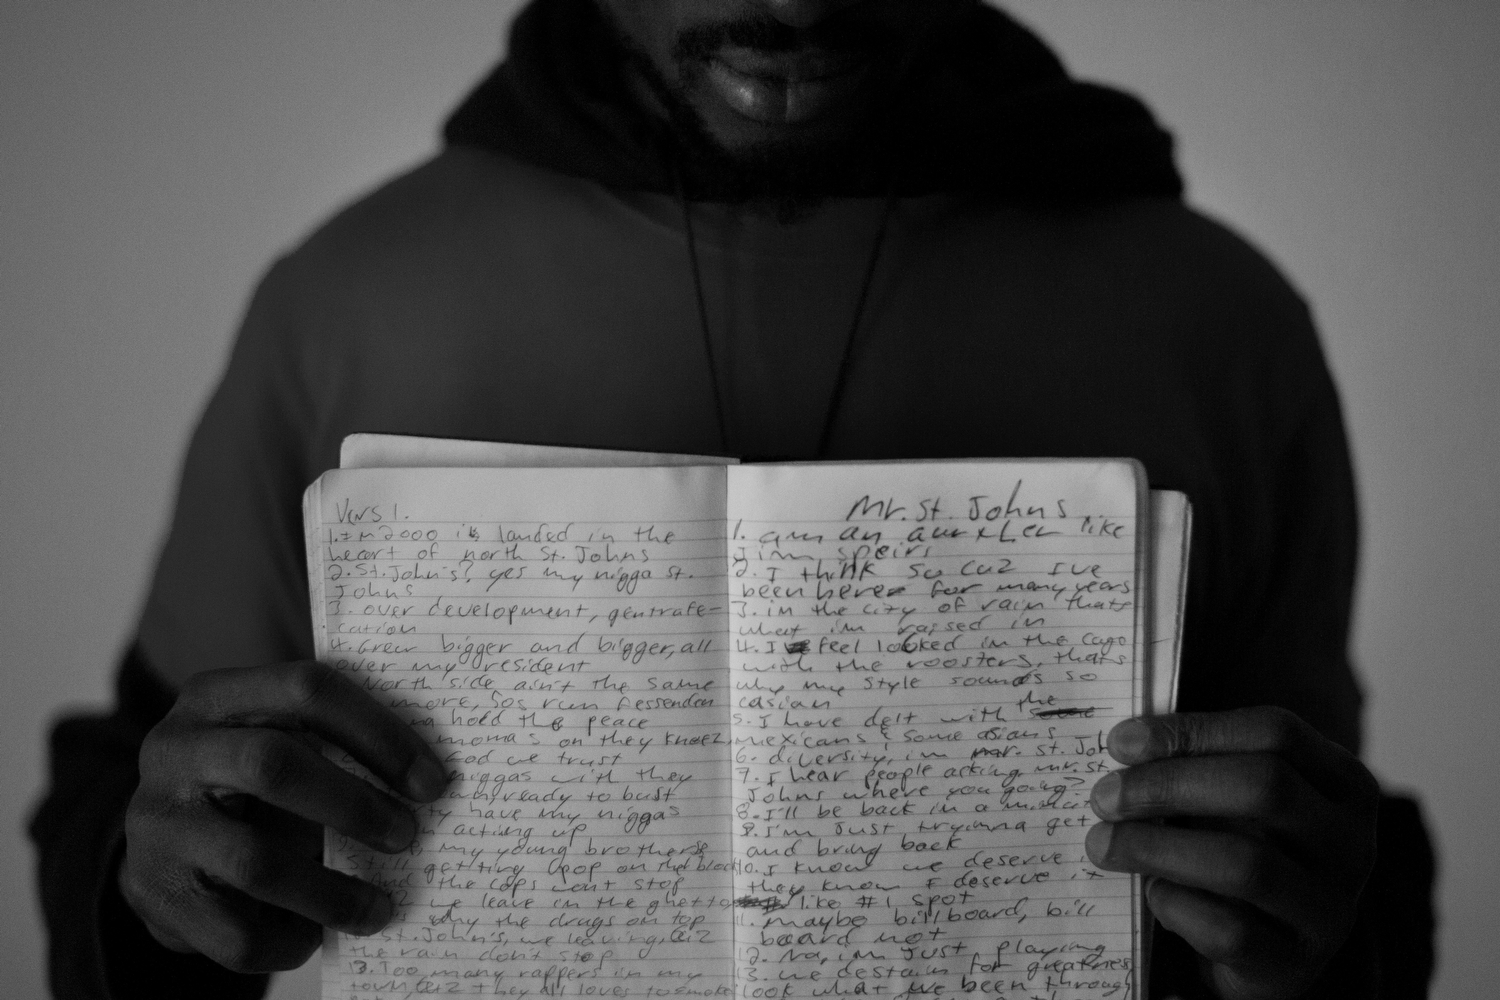 Vers 1.
1. Im 2000 is landed in the
heart of north St. Johns
2. St. John's? yes my nigga st.
Johns
3. over development, gentrafe-
cation
4. Grew bigger and bigger, all
over my resident
North side ain't the same
more, 50s run Fessenden
na hold the peace
moma's on they kneez
God we trust
niggas with they
ready to bust
ty have my niggas
acting up
my young brothers
Still getting Opop on the block
And the cops wont stop
we leave in the ghetto
why the drugs on top
St. John's, we leaving, cuz
the rain don't stop
13. Too many rappers in my
town, cuz they all loves to smoke
Mr. St. Johns
1. am an like
Jim speirs
2. I think so cuz I've
been here for many years
3. in the city of rain thats
what im rassed in
4. I feel locked in the cage
with the roosters, thats
why my style sounds so
casian
5. I have delt with the
mexicans & some asians
6. diversity, im mr. St. Joh
7. I hear people asking, mr. st.
Johns where you going?
8. I'll be back in a minut
9. I'm Just tryinna get
and bring back
10. I know we deserve
they know I deserve it
like #1 spot
11. maybe billboard, bill
board not
12. No, im Just playing
13. we destain for greatness
look what we been through